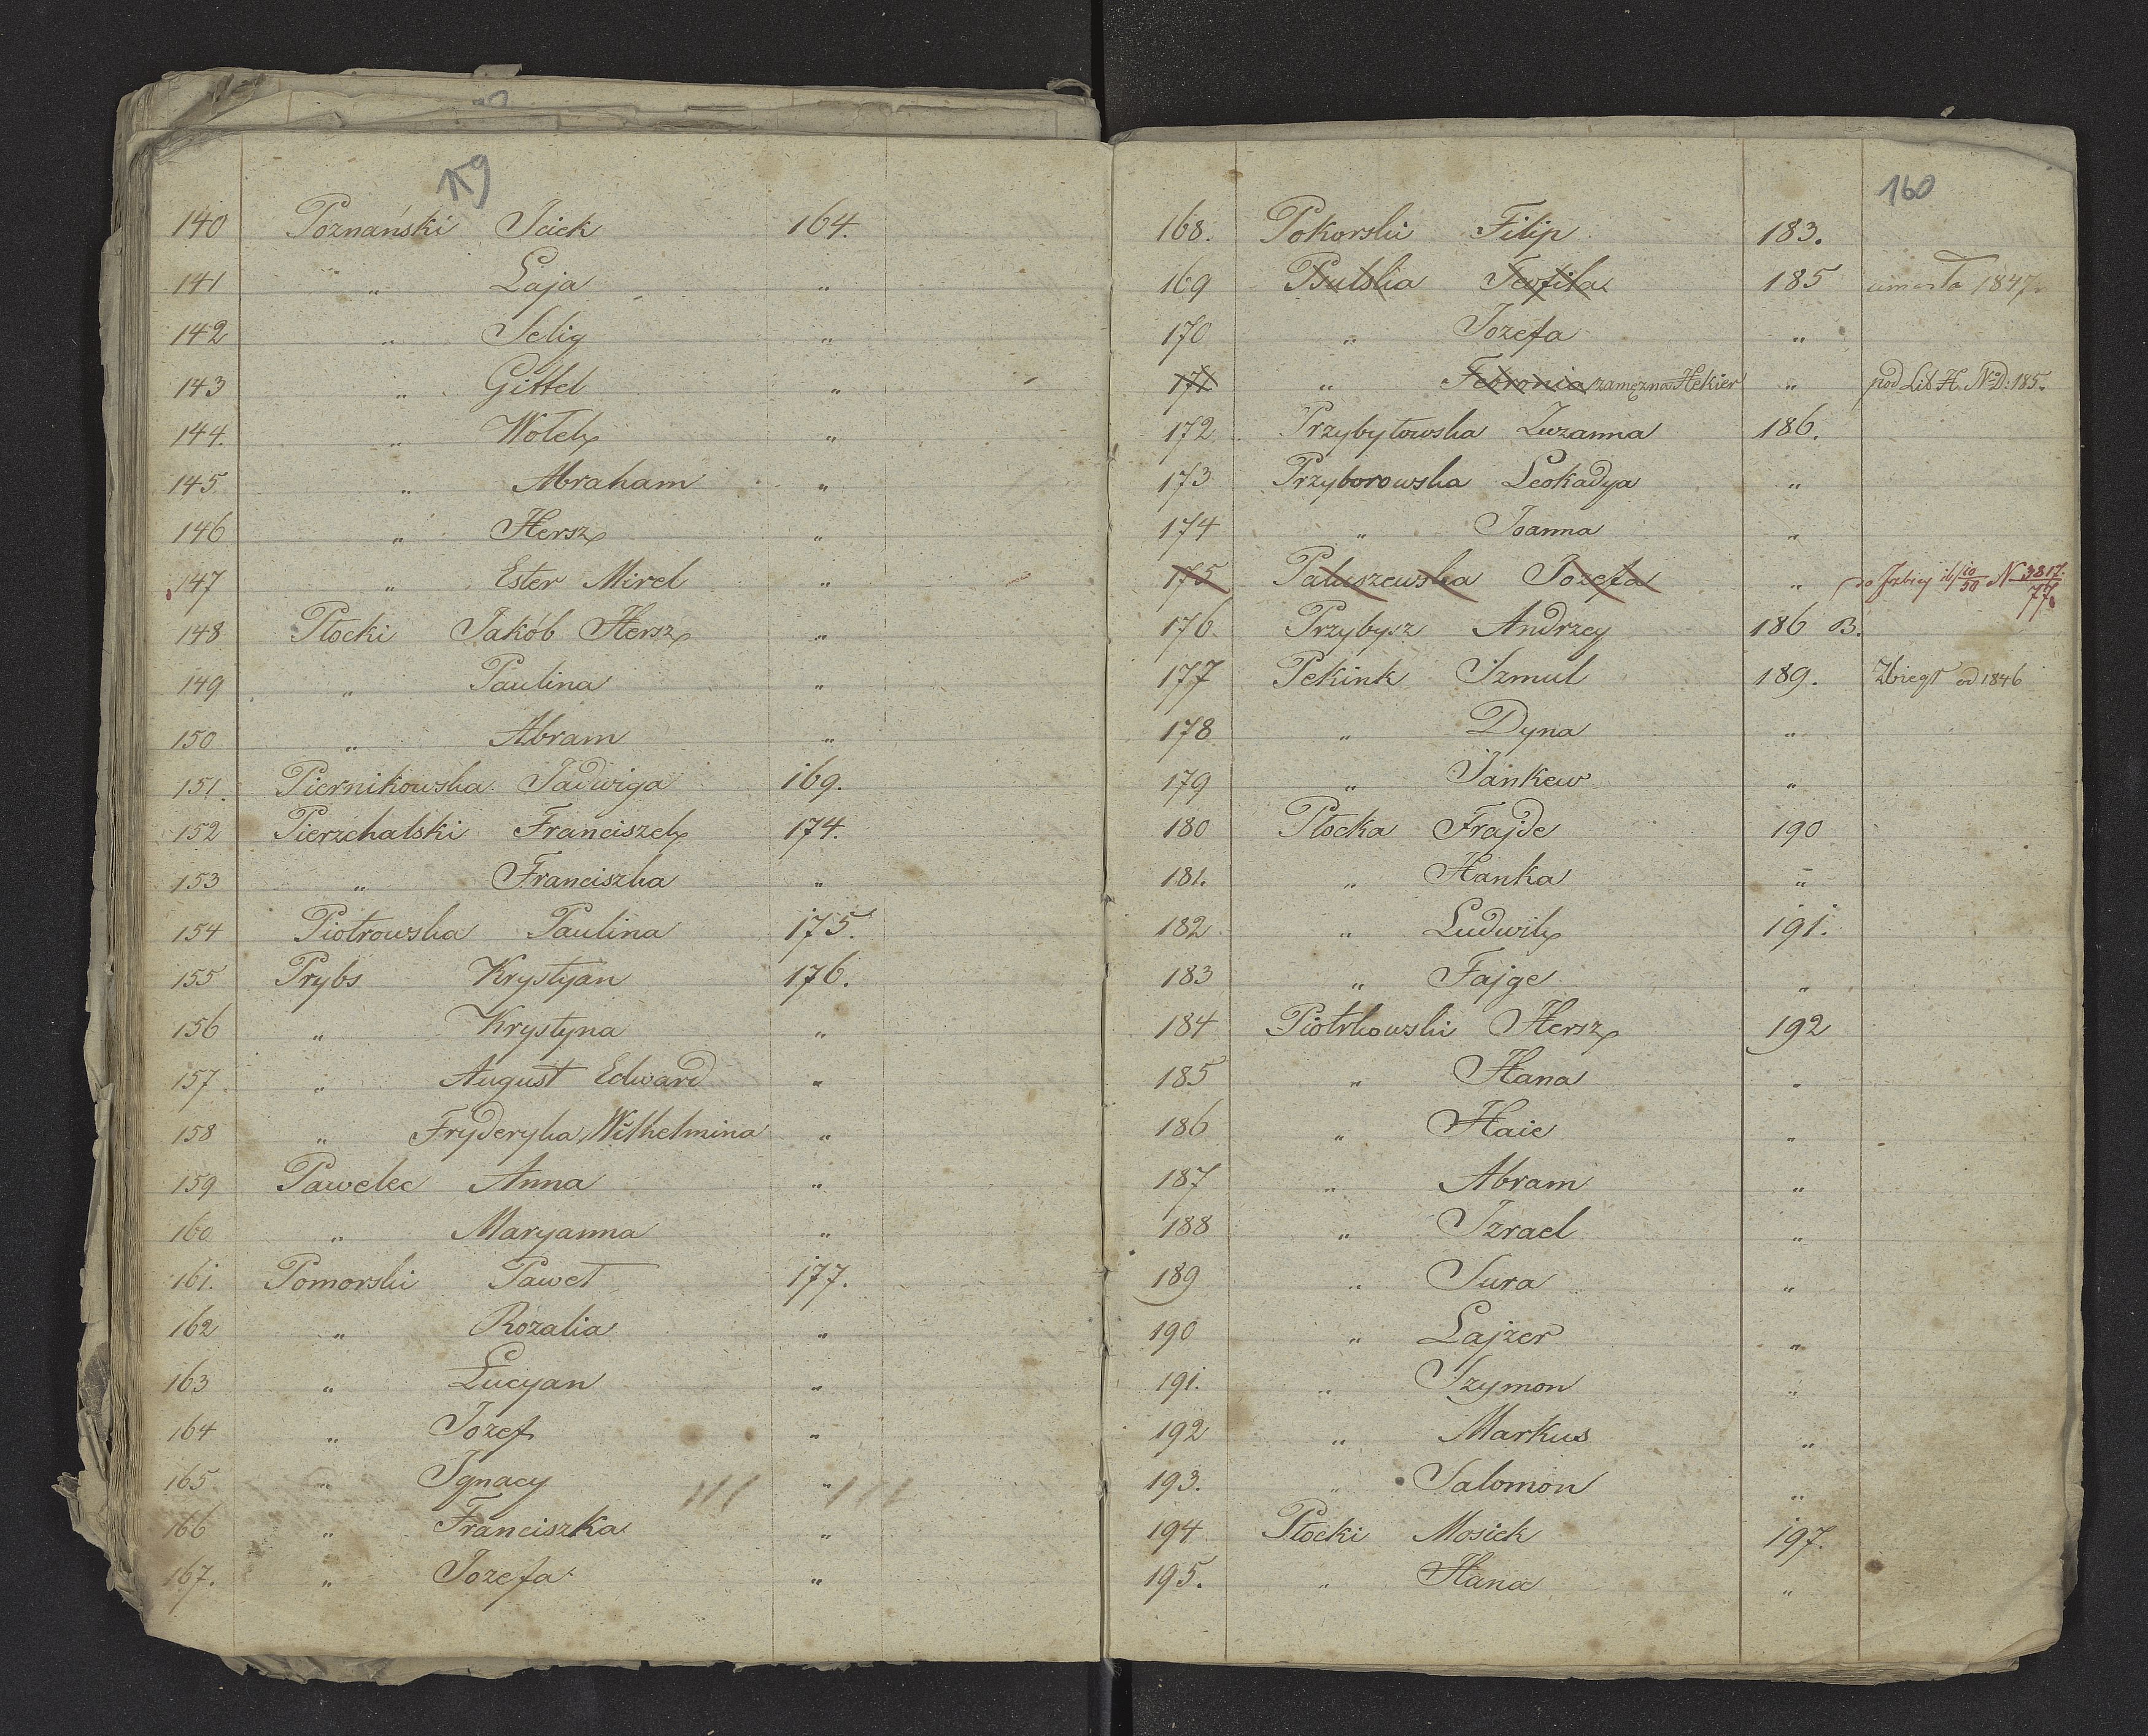 159
140 Poznański Icick 164.
141 " Laja "
142 " Selig "
143 " Gittel "
144. " Wolek "
145 " Abraham "
146 " Hersz "
147 " Ester Mirel "
148 Płocki Jakób Hersz "
149 " Paulina "
150 " Abram "
151. Piernikowska Jadwiga 169.
152 Pierzchalski Franciszek 174.
153 " Franciszka "
154 Piotrowska Paulina 175.
155 Prybs Krystyan 176.
156 " Krystyna "
157. " August Edward "
158 " Fryderyka Wilhelmina "
159 Pawelec Anna "
160 " Maryanna "
161. Pomorski Paweł 177.
162 " Rozalia "
163 " Lucyan "
164 " Jozef "
165 " Ignacy "
166 " Franciszka "
167. " Jozefa "
160
168. Pokorski Filip 183.
169 Teofila 185 umarła 1847.
170 " Jozefa "
171 " Febronia zamęzna Hekier " pod Lit H. No D: 185.
172 Przybyłowska Zuzanna 186.
173 Przyborowska Leokadya "
174 " Joanna "
175 Paluszewska Jozefa " N 3817/77
176. Przybysz Andrzey 186 B.
177 Pekink Szmul 189. Zbiegł od 1846
178 " Dyna "
179 " Jankew "
180 Płocka Frajde 190
181. " Hanka "
182 " Ludwik 191.
183 " Fajge "
184 Piotrkowski Hersz 192
185 " Hana "
186 " Haie "
187 " Abram "
188 " Izrael "
189 " Sura "
190 " Lajzer "
191. " Szymon "
192 " Markus "
193. " Salomon "
194 Płocki Mosick 197.
195. " Hana "